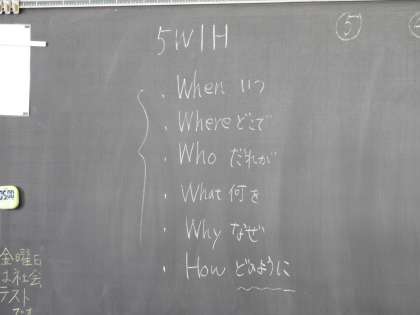 5W1H
⑤
・When いつ
・Where どこで
・Who だれが
・What 何を
・Why なぜ
・How どのように
金曜日
は社会
テスト
です